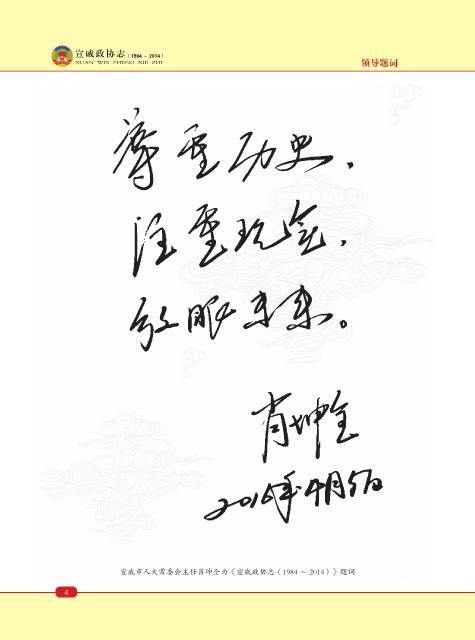 宣威政协志（1984～2014）
XUAN WEI ZHENG XIE ZHI
领导题词
尊重历史，
注重现实，
放眼未来。
肖坤全
2016年4月5日
宣威市人大常委会主任肖坤全为《宣威政协志（1984～2014）》题词
4